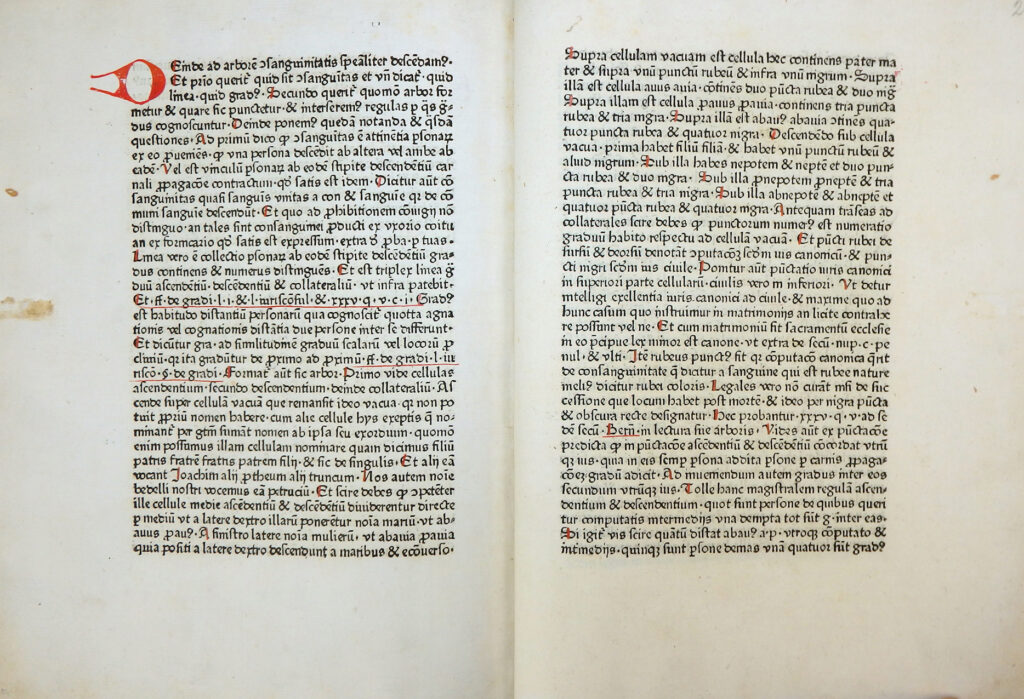 DEinde ad arborē ↄsanguinitatis sp̄ealiter descēdam⁹·
Et prīo querit᷑ quid sit ↄsanguītas et vn̄ dicat᷑· quid
linea·quid grad⁹· Secundo querit᷑ quomō arbor for
metur & quare sic punctetur·& interserem⁹ regulas ꝑ q̄s g̃-
dus cognoscuntur· Deinde ponem⁹ quedā notanda & q̄sdā
questiones· Ad primū dico ꝙ ↄsanguītas ē attinētia ꝑsonaꝝ
ex eo ꝓueniēs· ꝙ vna persona descēdit ab altera vel ambe ab
eadē· Vel est vīculū ꝑsonaꝝ ab eodē stipite descēdētiū car
nali ꝓpagacōe contractum· qd̛ satis est idem· Dicitur aūt cō
sanguinitas quasi sanguīs vnitas a con & sanguīe qr de cō
muni sanguīe descendūt· Et quo ad ꝓhibitionem cōiugij nō
distinguo·an tales sint consanguinei ꝓducti ex vxorio coitu
an ex fornicario qd̛ satis est expressum·extra d̛ ꝓba·p tuas·
Linea vero ē collectio ꝑsonaꝝ ab eodē stipite descēdētiū gra-
dus continens & numerus distinguēs· Et est triplex linea g̃
duū ascēdētiū·descēdētiū & collateraliū· vt infra patebit·
Et ·ff· de gradi·l·i·& l·iurisconsul·& xxxv·q·v·c·i· Grad⁹
est habitudo distantiū personarū qua cognoscit᷑ quotta agna
tionis vel cognationis distātia due persone inter se differunt·
Et dicūtur gra· ad similitudinē graduū scalarū vel locorū ꝓ
cliuiū·qr ita gradūtur de ꝓximo ad ꝓximū·ff·de gradi·l·iu
riscō·§·de gradi· Format᷑ aūt sic arbor· Primo vide cellulas
ascendentium·secundo descendentium·deinde collateraliū· As
cende super cellulā vacuā que remansit ideo vacua·qr non po
tuit ꝓpriū nomen habere·cum alie cellule hijs exeptis q̄ no-
minant᷑ per gt̄m sumāt nomen ab ipsa seu exordium·quomō
enim possumus illam cellulam nominare quam dicimus filiū
patris fratrē fratris patrem filij·& sic de singulis· Et alij eā
vocant Joachim alij ꝓtheum alij truncum· Nos autem noīe
bedelli nostri vocemus eā petruciū· Et scire debes ꝙ ↄpetēter
ille cellule medie ascēdētiū & descēdētiū diuiderentur directe
ꝑ mediū vt a latere dextro illarū ponerētur noīa mariū·vt ab-
auus ꝓau⁹· A sinistro latere noīa mulierū·vt abauia ꝓauia
quia positi a latere dextro descendunt a maribus & ecōuerso·
Supra cellulam vacuam est cellula hec continens pater ma
ter & supra vnū punctū rubeū & infra vnū nigrum· Supra
illā est cellula auus auia·cōtinēs duo pūcta rubea & duo nig̃
Supra illam est cellula ꝓauus ꝓauia·continens tria puncta
rubea & tria nigra· Supra illā est abau⁹ abauia ↄtinēs qua-
tuor pūcta rubea & quatuor nigra· Descendēdo sub cellula
vacua·prima habet filiū filiā·& habet vnū punctū rubeū &
aliud nigrum· Sub illa habes nepotem & neptē et duo pun-
cta rubea & duo nigra· Sub illa ꝓnepotem ꝓneptē & tria
puncta rubea & tria nigra· Sub illa abnepotē & abneptē et
quatuor pūcta rubea & quatuor nigra· Antequam trāseas ad
collaterales scire debes ꝙ punctorum numer⁹ est numeratio
graduū habito respectu ad cellulā vacuā· Et pūcti rubei de
sursū & deorsū denotāt ↄputacōʒ scd̄m ius canonicū·& pun-
cti nigri scd̄m ius ciuile· Ponitur aūt pūctatio iuris canonici
in superiori parte cellularū·ciuilis vero in inferiori· Vt detur
intelligi exellentia iuris canonici ad ciuile·& maxime quo ad
hunc casum quo instruimur in matrimonijs an licite contrahe
re possunt vel ne· Et cum matrimoniū sit sacramentū ecclesie
in eo p̄cipue lex minor est canone·vt extra de secū·nup·c·pe
nul·& vlti· Itē rubeus punct⁹ sit qr cōputacō canonica q̄rit
de consanguinitate q̄ dicitur a sanguine qui est rubee nature
melius dicitur rubei coloris· Legales vero nō curāt nisi de suc
cessione que locum habet post mortē·& ideo per nigra pūcta
& obscura recte designatur· Hec probantur·xxxv·q·v·ad se
dē secū· Bern̄ in lectura sue arboris· Vides aūt ex pūctacōe
predicta ꝙ in pūctacōe ascēdētiū & descēdētiū cōcordat vtrū
qꝫ ius·quia in eis semꝑ ꝑsona addita ꝑsone ꝑ carnis ꝓpaga-
cōeʒ gradū adicit· Ad inueniendum autem gradus inter eos
secundum vtrūqꝫ ius· Tolle hanc magistralem regulā ascen-
dentium & descendentium·quot sunt persone de quibus queri
tur computatis intermedijs vna dempta tot sūt g̃·inter eas·
Si igit᷑ vis scire quātū distat abau⁹ a·p·vtroqꝫ cōputato &
int̄medijs·quinqꝫ sunt ꝑsone demas vnā quatuor sūt grad⁹